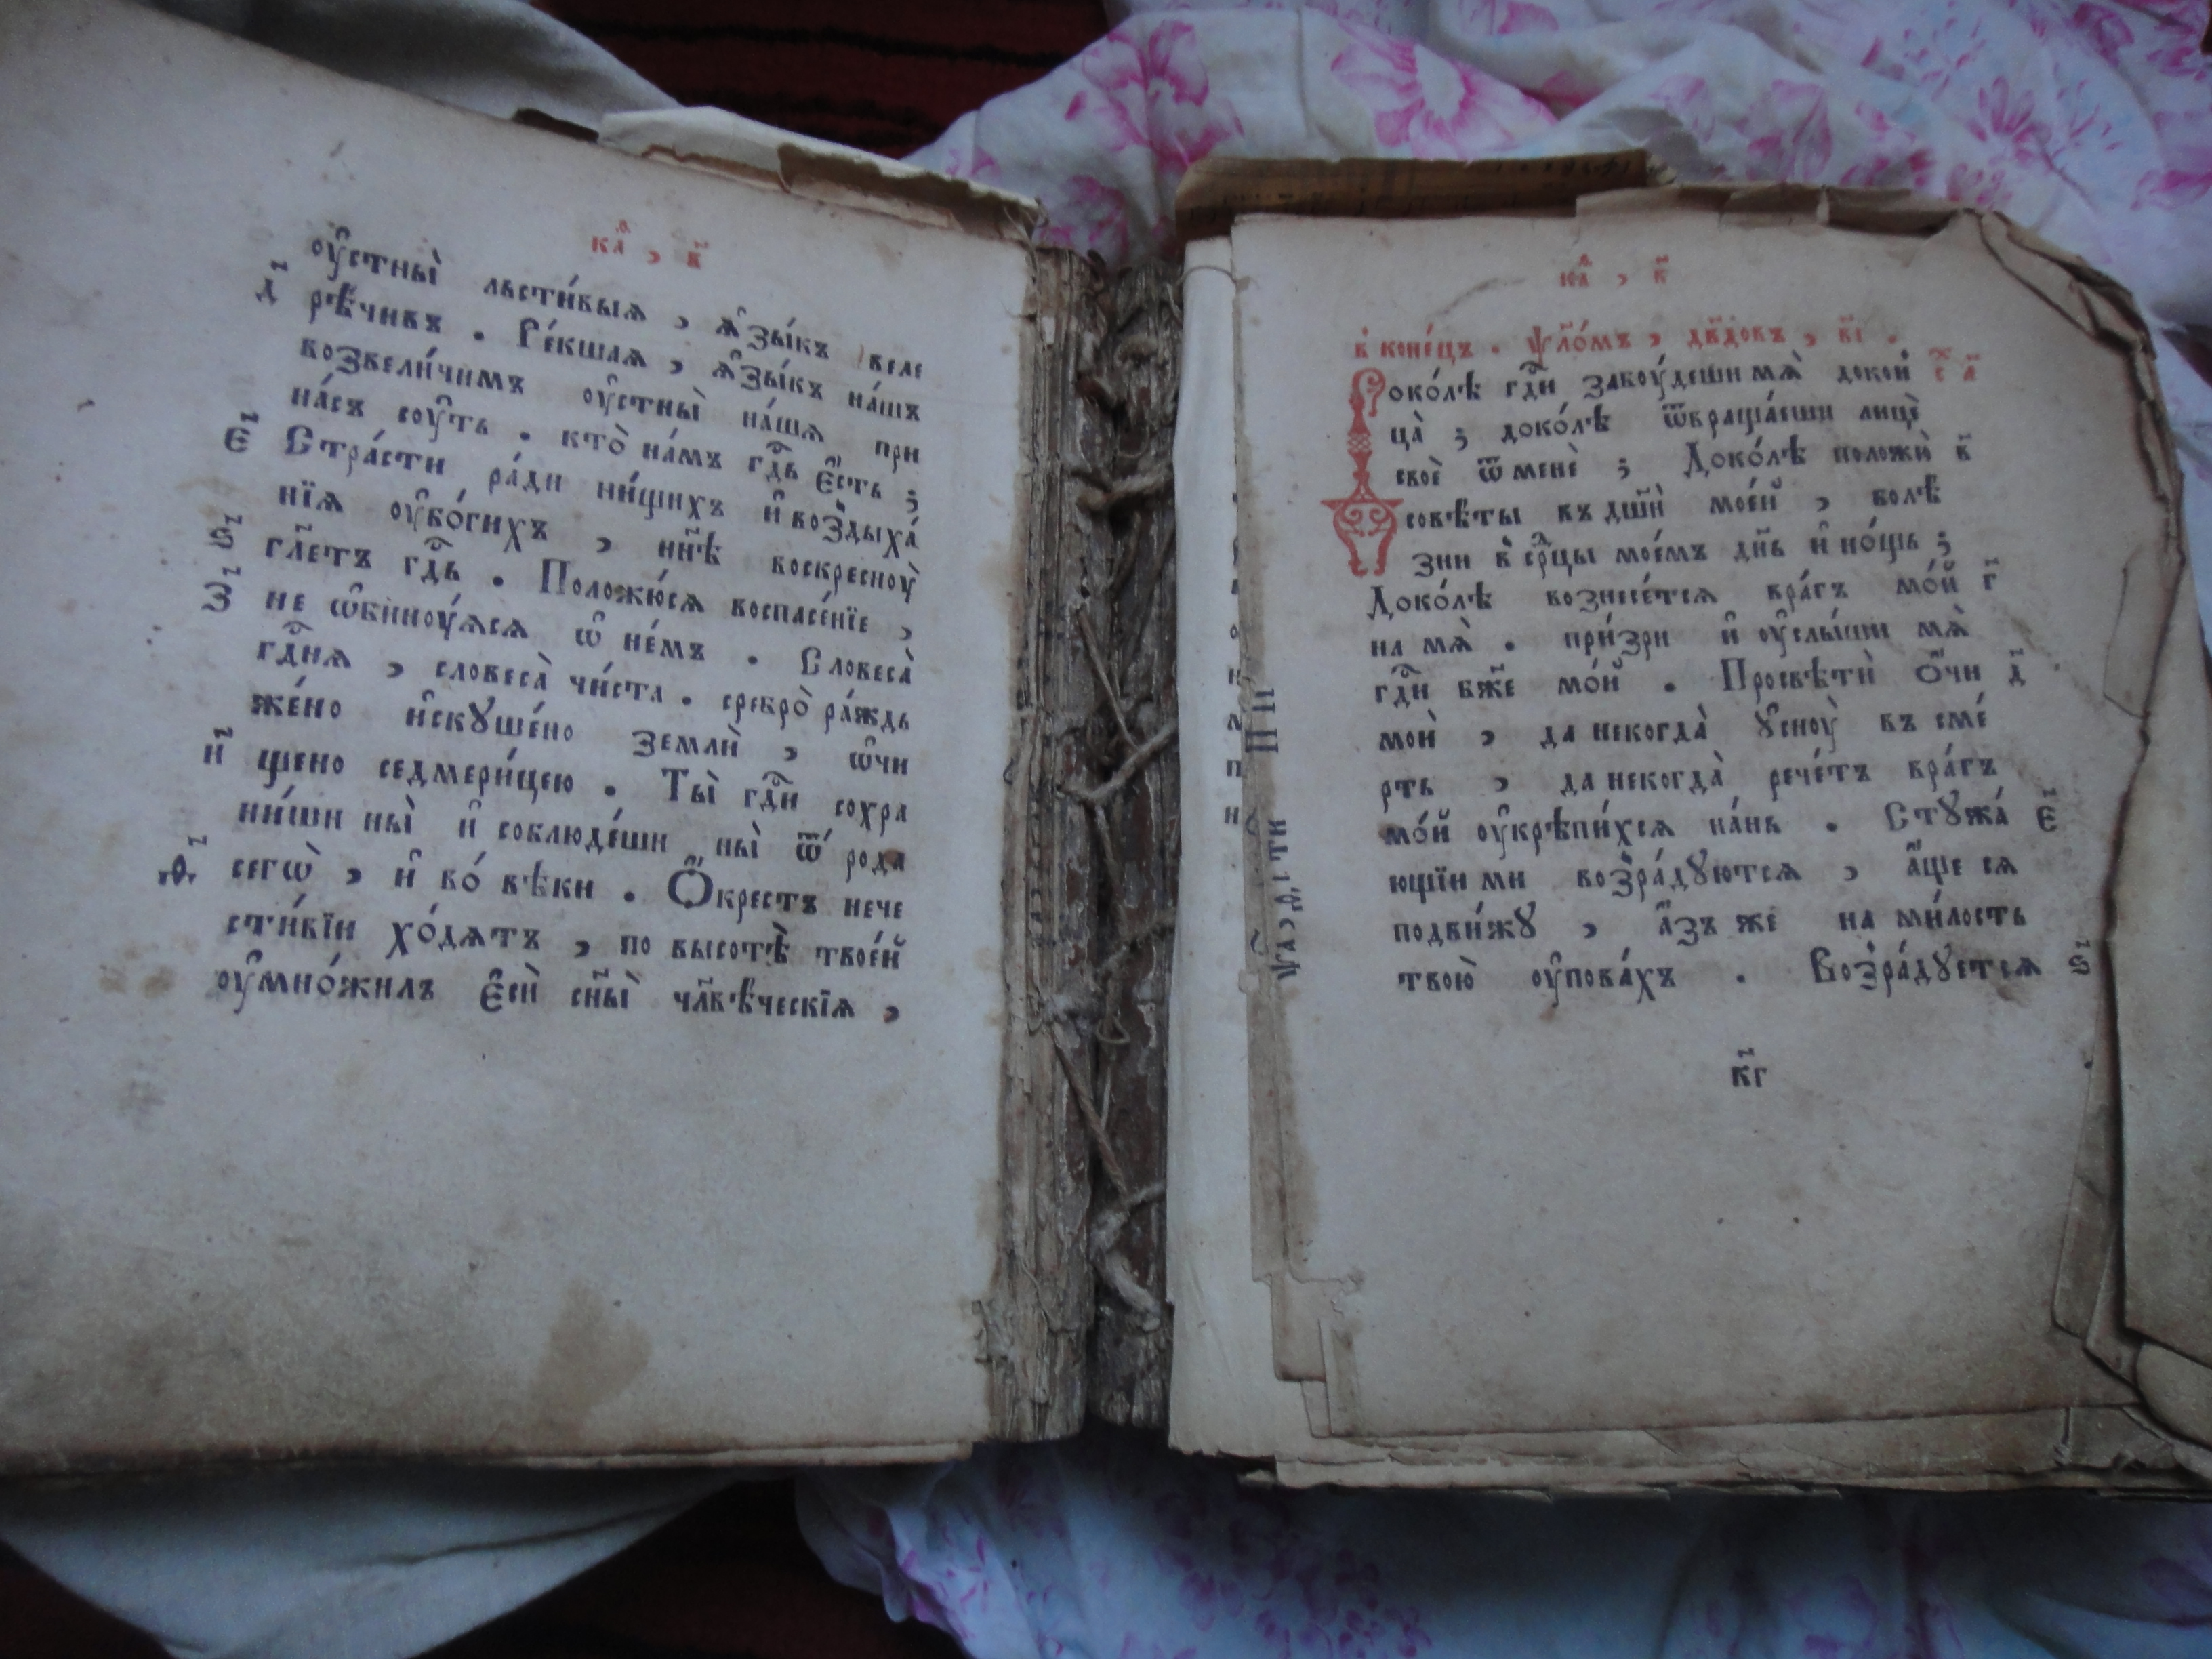 ка̑ѳ , в҃
оу҆стны̀ льсти́выѧ , ѧ҆зы́къ веле
д҃ рѣ́чивъ . Ре́кшаѧ , ѧ҆зы́къ на́шъ
возвели́чимъ оу҆стны̀ на́шѧ при
на́съ соу́ть . кто̀ на́мъ гд҇ь є҆́сть ;
є҃ Стра́сти ра́ди ни́щихъ и҆ воз̾дыха́
нїѧ оу҆бо́гихъ , нн҃ѣ воскресноу̀
ѕ҃ гл҃етъ гд҇ь . Положю́сѧ воспасе́нїе ,
з҃ не ѡ҆бинноу́ѧсѧ ѡ҆ не́мъ . Словеса̀
гд҇нѧ , словеса̀ чи́ста . сребро̀ ра́ждь
же́но и҆скꙋше́но землѝ , ѡ҆чи
и҃ щено седмери́цею . Ты̀ гд҇и сохра
ни́ши ны̀ и҆ соблюде́ши ны̀ ѿ рода
ѳ҃ сегѡ̀ , и҆ во́ вѣки . Ѻ҆́крестъ нече
сти́вїи хо́дѧтъ , по высотѣ̀ твое́й
оу҆мно́жилъ є҆сѝ сн҃ы̀ чл҃вѣ́ческїѧ ,
ка̑ѳ , в҃
в̾ коне́цъ . ѱло́мъ , дв҃довъ , в҃і .
Доко́лѣ гд҇и забоу́деши мѧ̀ докон
ца̀ ; доко́лѣ ѿвраща́еши лицѐ
своѐ ѿ менѐ ; Доко́лѣ положꙋ̀ в҃
совѣ́ты въ дш҃ѝ мое́й , болѣ
зни в̾ ср҇цы мое́мъ дн҃ь и҆ но́щь ;
Доко́лѣ вознесе́тсѧ вра́гъ мо́й г҃
на мѧ̀ . при́зри и҆ оу҆слы́ши мѧ̀
гд҇и бж҃е мо́й . Просвѣтѝ ѻ҆́чи д҃
моѝ , да некогда̀ ꙋ҆сноу̀ въ сме́
рть , да некогда̀ рече́тъ вра́гъ
мо́й оу҆крѣпи́хсѧ на́нь . Стꙋжа́ є҃
ющїи ми воз̾ра́дꙋютсѧ , а҆́ще сѧ
подви́жꙋ , а҆́зъ же на ми́лость
твою̀ оу҆пова́хъ . Воз̾ра́дꙋетсѧ ѕ҃
к҃г